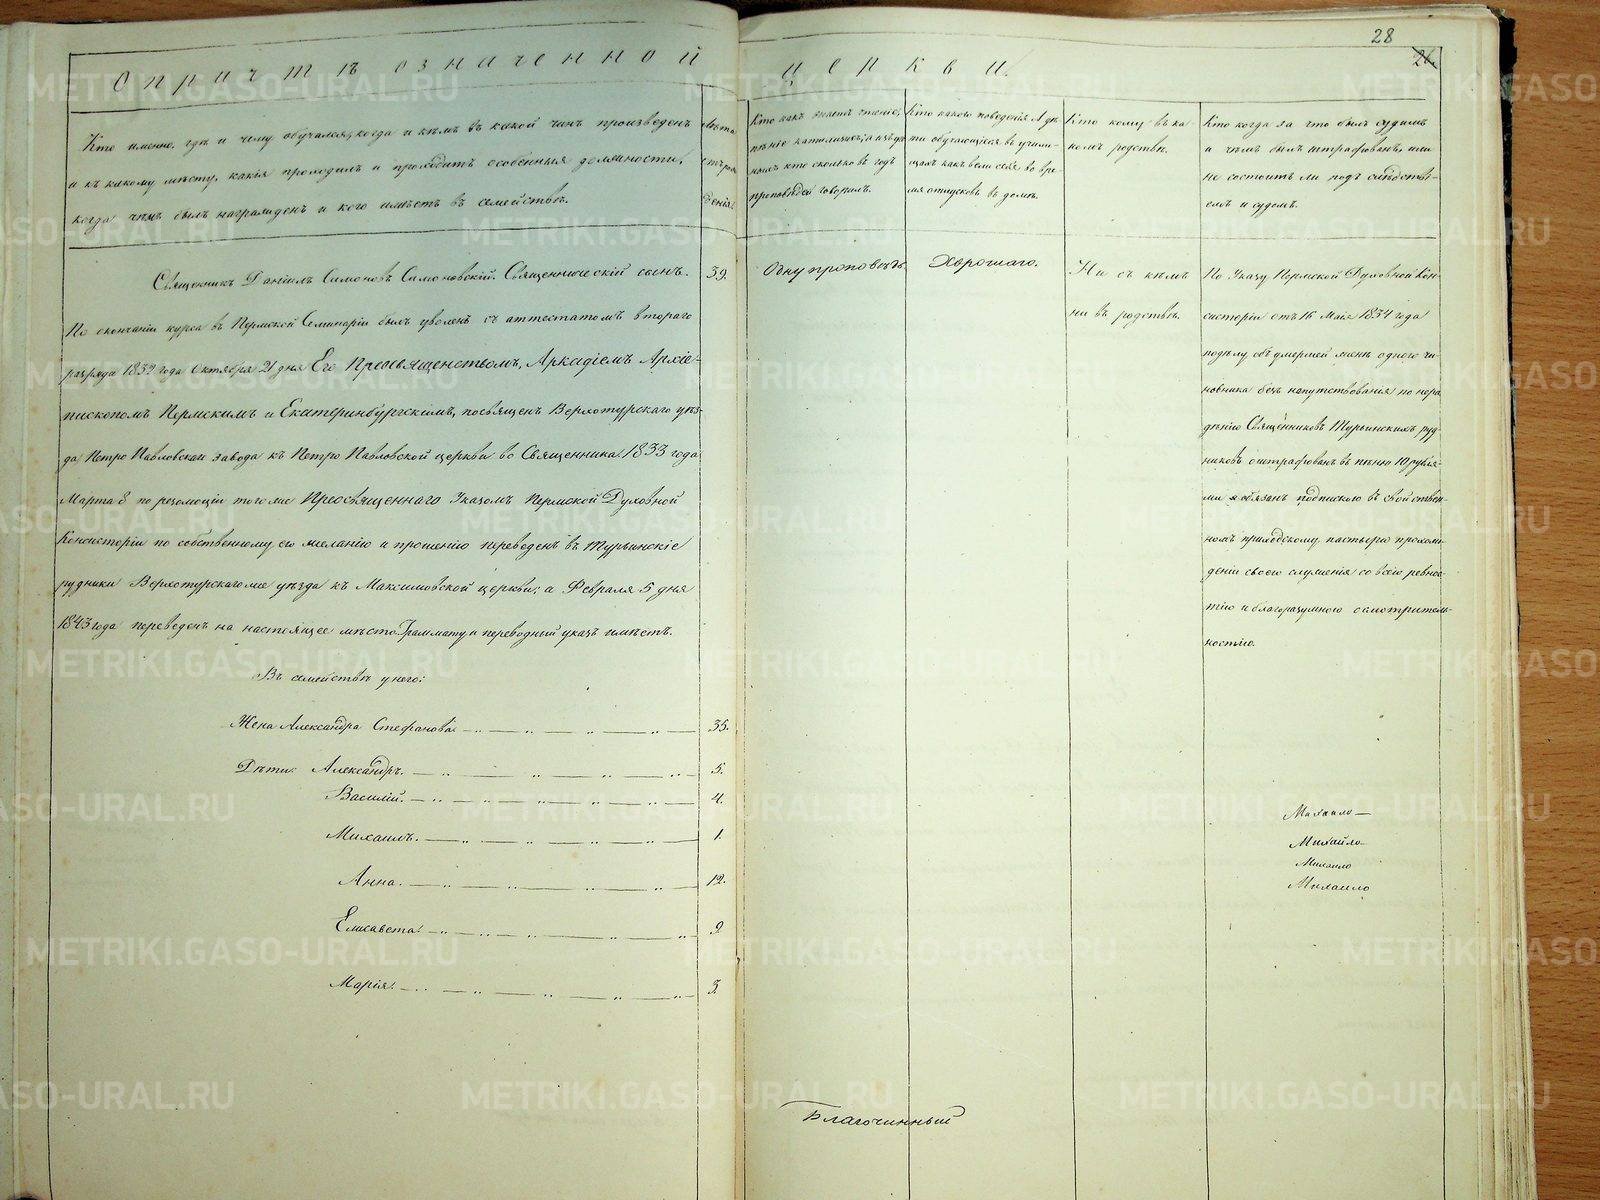 28
26.
О причтѣ означенной церкви.
Кто именно, гдѣ и чему обучался, когда и кѣмъ въ какой чинъ произведенъ
и къ какому мѣсту, какія проходилъ и проходитъ особенныя должности,
когда чѣмъ былъ награжденъ и кого имѣетъ въ семействѣ.
Лѣта
отъ рож
денія.
Кто какъ знаетъ чтеніе,
пѣніе катихизисъ, а изъ уче
ныхъ кто сколько въ годъ
проповѣдей говорилъ.
Кто какого поведенія. А дѣ
ти обучающіяся въ учили-
щахъ какъ вели себя во вре-
мя отпусковъ въ домы.
Кто кому въ ка
комъ родствѣ.
Кто когда за что былъ судимъ
и чѣмъ былъ штрафованъ, или
не состоитъ ли подъ слѣдстві-
емъ и судомъ.
Священникъ Даніилъ Симоновъ Симоновскій. Священническій сынъ.
39.
По окончаніи курса въ Пермской Семинаріи былъ уволенъ съ аттестатомъ втораго
разряда 1832 года Октября 21 дня Его Преосвященствомъ, Аркадіемъ Архіе-
пископомъ Пермскимъ и Екатеринбургскимъ, посвященъ Верхотурскаго уѣз-
да Петро Павловскаго завода къ Петро Павловской церкви во Священника. 1833 года
Марта 8 по резолюціи того же Преосвященнаго Указомъ Пермской Духовной
Консисторіи по собственному его желанію и прошенію переведенъ въ Турьинскіе
рудники Верхотурскаго же уѣзда къ Максимовской церкви; а Февраля 5 дня
1843 года переведенъ на настоящее мѣсто. Граммату и переводный указъ имѣетъ.
Въ семействѣ у него:
Жена Александра Стефанова. 35.
Дѣти: Александръ. 5.
Василій. 4.
Михаилъ. 1.
Анна. 12.
Елисавета. 9.
Марія. 3.
Одну проповѣдь
Хорошаго.
Ни съ кѣмъ
ни въ родствѣ.
По Указу Пермской Духовной Кон-
систоріи отъ 16 Маія 1834 года
по дѣлу, объ умершей женѣ одного чи-
новника безъ напутствованія по нера
дѣнію Священниковъ Турьинскихъ руд-
никовъ оштрафованъ въ пѣню 10 рубля-
ми и обязанъ подпискою въ свойствен-
номъ приходскому пастырю прохож-
деніи своего служенія со всею ревнос-
тію и благоразумною осмотритель-
ностію.
Михаило
Михайло
Михаило
Михаило
Благочинный